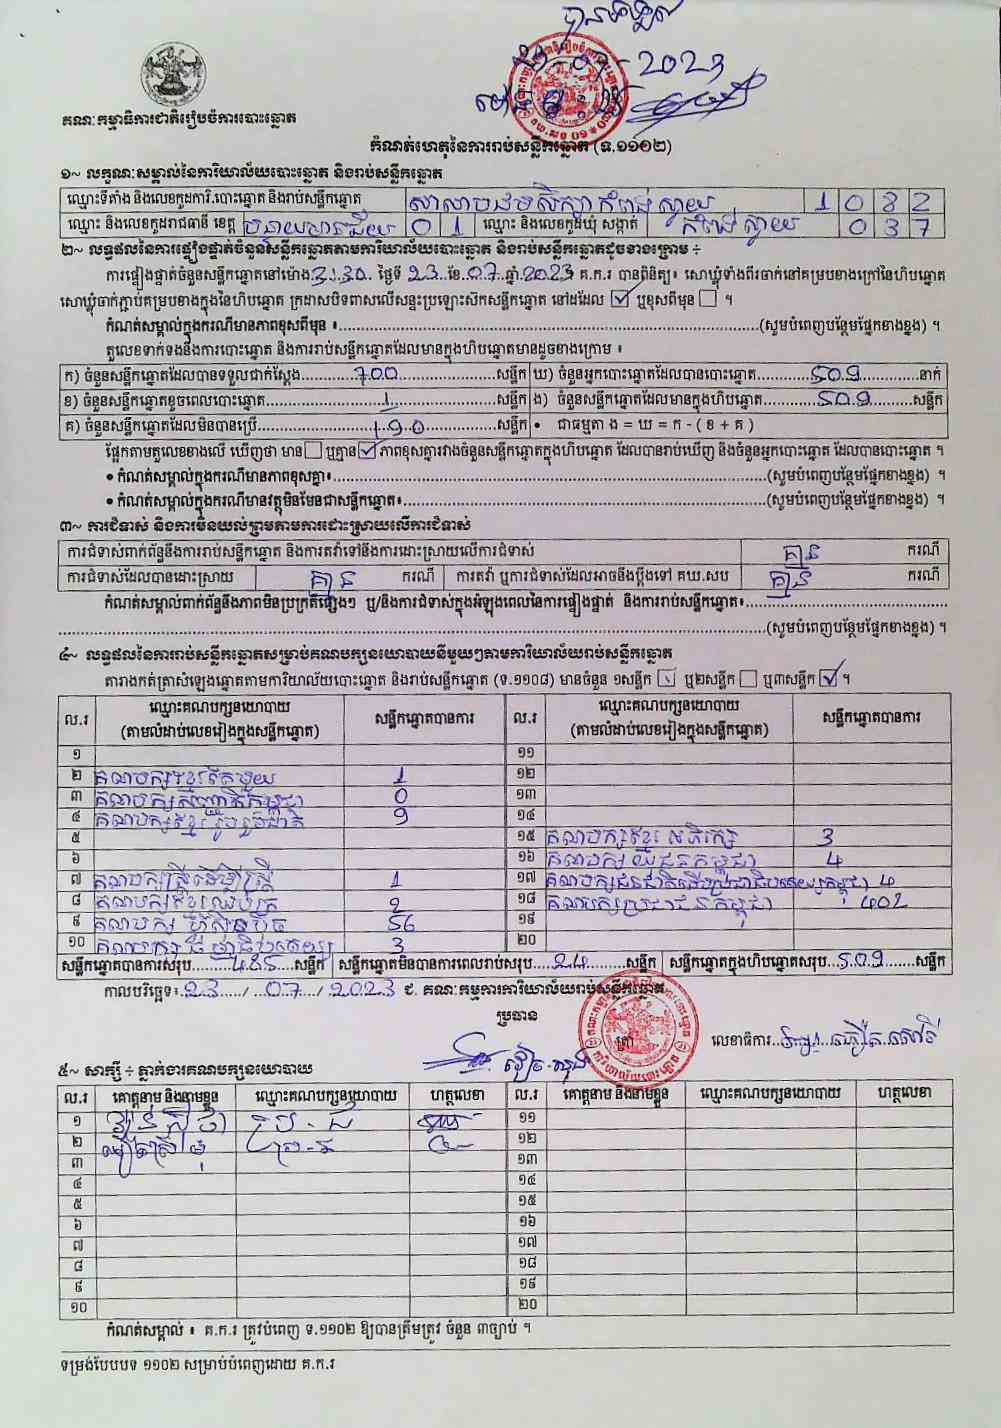 បានឃើញ
2023
គណៈកម្មាធិការជាតិរៀបចំការបោះឆ្នោត
កំណត់ហេតុនៃការរាប់សន្លឹកឆ្នោត (ទ.១១០២)
១~ លក្ខណៈសម្គាល់នៃការិយាល័យបោះឆ្នោត និងរាប់សន្លឹកឆ្នោត
ឈ្មោះទីតាំង និងលេខកូដការិ.បោះឆ្នោត និងរាប់សន្លឹកឆ្នោត សាលាបឋមសិក្សាកំពង់ស្វាយ 1 0 8 2
ឈ្មោះ និងលេខកូដរាជធានី ខេត្ត បន្ទាយមានជ័យ 0 1 ឈ្មោះ និងលេខកូដឃុំ សង្កាត់ កំពង់ស្វាយ 0 3 7
២~ លទ្ធផលនៃការផ្ទៀងផ្ទាត់ចំនួនសន្លឹកឆ្នោតតាមការិយាល័យបោះឆ្នោត និងរាប់សន្លឹកឆ្នោតដូចខាងក្រោម ÷
ការផ្ទៀងផ្ទាត់ចំនួនសន្លឹកឆ្នោតនៅម៉ោង 3:30 ថ្ងៃទី 23 ខែ 07 ឆ្នាំ 2023 គ.ក.រ បានពិនិត្យ៖ សោឃ្លុំទាំងពីរចាក់នៅគម្របខាងក្រៅនៃហិបឆ្នោត
សោឃ្លុំចាក់ភ្ជាប់គម្របខាងក្នុងនៃហិបឆ្នោត ក្រដាសបិទពាសលើសន្ទះប្រឡោះស៊កសន្លឹកឆ្នោត នៅដដែល ☑ ឬខុសពីមុន ☐ ។
កំណត់សម្គាល់ក្នុងករណីមានភាពខុសពីមុន ៖ (សូមបំពេញបន្ថែមផ្នែកខាងខ្នង) ។
តួលេខទាក់ទងនឹងការបោះឆ្នោត និងការរាប់សន្លឹកឆ្នោតដែលមានក្នុងហិបឆ្នោតមានដូចខាងក្រោម ៖
ក) ចំនួនសន្លឹកឆ្នោតដែលបានទទួលជាក់ស្ដែង 700 សន្លឹក ឃ) ចំនួនអ្នកបោះឆ្នោតដែលបានបោះឆ្នោត 509 នាក់
ខ) ចំនួនសន្លឹកឆ្នោតខូចពេលបោះឆ្នោត 1 សន្លឹក ង) ចំនួនសន្លឹកឆ្នោតដែលមានក្នុងហិបឆ្នោត 509 សន្លឹក
គ) ចំនួនសន្លឹកឆ្នោតដែលមិនបានប្រើ 190 សន្លឹក • ជាធម្មតា ង = ឃ = ក - ( ខ + គ )
ផ្អែកតាមតួលេខខាងលើ ឃើញថា មាន ☐ ឬគ្មាន ☑ ភាពខុសគ្នារវាងចំនួនសន្លឹកឆ្នោតក្នុងហិបឆ្នោត ដែលបានរាប់ឃើញ និងចំនួនអ្នកបោះឆ្នោត ដែលបានបោះឆ្នោត ។
• កំណត់សម្គាល់ក្នុងករណីមានភាពខុសគ្នា៖ (សូមបំពេញបន្ថែមផ្នែកខាងខ្នង) ។
• កំណត់សម្គាល់ក្នុងករណីមានវត្ថុមិនមែនជាសន្លឹកឆ្នោត៖ (សូមបំពេញបន្ថែមផ្នែកខាងខ្នង) ។
៣~ ការជំទាស់ និងការមិនយល់ព្រមតាមការដោះស្រាយលើការជំទាស់
ការជំទាស់ពាក់ព័ន្ធនឹងការរាប់សន្លឹកឆ្នោត និងការតវ៉ាទៅនឹងការដោះស្រាយលើការជំទាស់ គ្មាន ករណី
ការជំទាស់ដែលបានដោះស្រាយ គ្មាន ករណី ការតវ៉ា ឬការជំទាស់ដែលអាចនឹងប្ដឹងទៅ គឃ.សប គ្មាន ករណី
កំណត់សម្គាល់ពាក់ព័ន្ធនឹងភាពមិនប្រក្រតីផ្សេងៗ ឬ/និងការជំទាស់ក្នុងអំឡុងពេលនៃការផ្ទៀងផ្ទាត់ និងការរាប់សន្លឹកឆ្នោត៖
(សូមបំពេញបន្ថែមផ្នែកខាងខ្នង) ។
៤~ លទ្ធផលនៃការរាប់សន្លឹកឆ្នោតសម្រាប់គណបក្សនយោបាយនីមួយៗតាមការិយាល័យរាប់សន្លឹកឆ្នោត
តារាងកត់ត្រាសំឡេងឆ្នោតតាមការិយាល័យបោះឆ្នោត និងរាប់សន្លឹកឆ្នោត (ទ.១១០៨) មានចំនួន ១សន្លឹក ☐ ឬ២សន្លឹក ☐ ឬ៣សន្លឹក ☑ ។
ល.រ ឈ្មោះគណបក្សនយោបាយ (តាមលំដាប់លេខរៀងក្នុងសន្លឹកឆ្នោត) សន្លឹកឆ្នោតបានការ ល.រ ឈ្មោះគណបក្សនយោបាយ (តាមលំដាប់លេខរៀងក្នុងសន្លឹកឆ្នោត) សន្លឹកឆ្នោតបានការ
១ ១១
២ គណបក្សខ្មែរតែមួយ 1 ១២
៣ គណបក្សសញ្ជាតិកម្ពុជា 0 ១៣
៤ គណបក្សខ្មែររួបរួមជាតិ 9 ១៤
៥ ១៥ គណបក្សខ្មែរអភិរក្ស 3
៦ ១៦ គណបក្សយុវជនកម្ពុជា 4
៧ គណបក្សស្ត្រីដើម្បីស្ត្រី 1 ១៧ គណបក្សជនជាតិដើមប្រជាធិបតេយ្យកម្ពុជា 4
៨ គណបក្សខ្មែរឈប់ក្រ 2 ១៨ គណបក្សប្រជាជនកម្ពុជា 402
៩ គណបក្សហ៊្វុនស៊ិនប៉ិច 56 ១៩
១០ 3 ២០
សន្លឹកឆ្នោតបានការសរុប 485 សន្លឹក សន្លឹកឆ្នោតមិនបានការពេលរាប់សរុប 24 សន្លឹក សន្លឹកឆ្នោតក្នុងហិបឆ្នោតសរុប 509 សន្លឹក
កាលបរិច្ឆេទ៖ 23 / 07 / 2023 ជ. គណៈកម្មការការិយាល័យរាប់សន្លឹកឆ្នោត
ប្រធាន
លេខាធិការ
៥~ សាក្សី ÷ ភ្នាក់ងារគណបក្សនយោបាយ
ល.រ គោត្តនាម និងនាមខ្លួន ឈ្មោះគណបក្សនយោបាយ ហត្ថលេខា ល.រ គោត្តនាម និងនាមខ្លួន ឈ្មោះគណបក្សនយោបាយ ហត្ថលេខា
១ ១១
២ ១២
៣ ១៣
៤ ១៤
៥ ១៥
៦ ១៦
៧ ១៧
៨ ១៨
៩ ១៩
១០ ២០
កំណត់សម្គាល់ ៖ គ.ក.រ ត្រូវបំពេញ ទ.១១០២ ឱ្យបានត្រឹមត្រូវ ចំនួន ៣ច្បាប់ ។
ទម្រង់បែបបទ ១១០២ សម្រាប់បំពេញដោយ គ.ក.រ